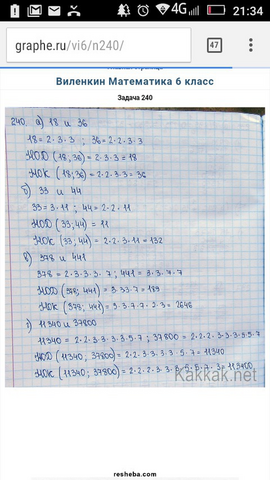 4G 21:34
graphe.ru/vi6/n240/ 47
Виленкин Математика 6 класс
Задача 240
240. а) 18 и 36
18 = 2·3·3 ; 36 = 2·2·3·3
НОД (18; 36) = 2·3·3 = 18
НОК (18; 36) = 2·2·3·3 = 36
б) 33 и 44
33 = 3·11 ; 44 = 2·2·11
НОД (33; 44) = 11
НОК (33, 44) = 2·2·3·11 = 132
в) 378 и 441
378 = 2·3·3·3·7 ; 441 = 3·3·7·7
НОД (378; 441) = 3·3·7 = 189
НОК (378; 441) = 3·3·7·7·2·3 = 2646
г) 11340 и 37800
11340 = 2·2·3·3·3·3·5·7 ; 37800 = 2·2·2·3·3·3·5·5·7
НОД (11340; 37800) = 2·2·3·3·3·5·7 = 11340
НОК (11340; 37800) = 2·2·2·3·3·3·5·5·7·3 = 113400
Kakkak.net
resheba.com